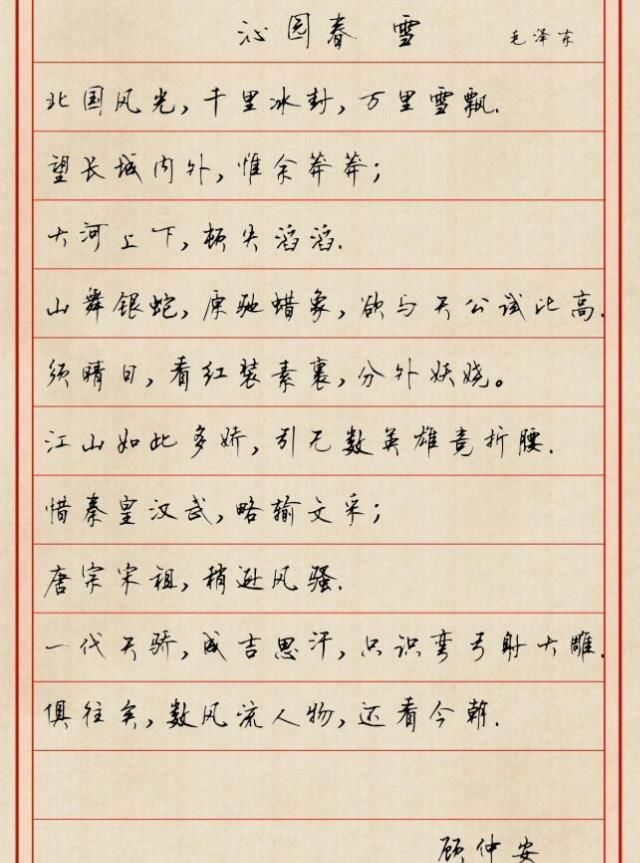 沁园春 雪 毛泽东
北国风光,千里冰封,万里雪飘.
望长城内外,惟余莽莽;
大河上下,顿失滔滔.
山舞银蛇,原驰蜡象,欲与天公试比高.
须晴日,看红装素裹,分外妖娆。
江山如此多娇,引无数英雄竞折腰.
惜秦皇汉武,略输文采;
唐宗宋祖,稍逊风骚.
一代天骄,成吉思汗,只识弯弓射大雕.
俱往矣,数风流人物,还看今朝.
顾仲安